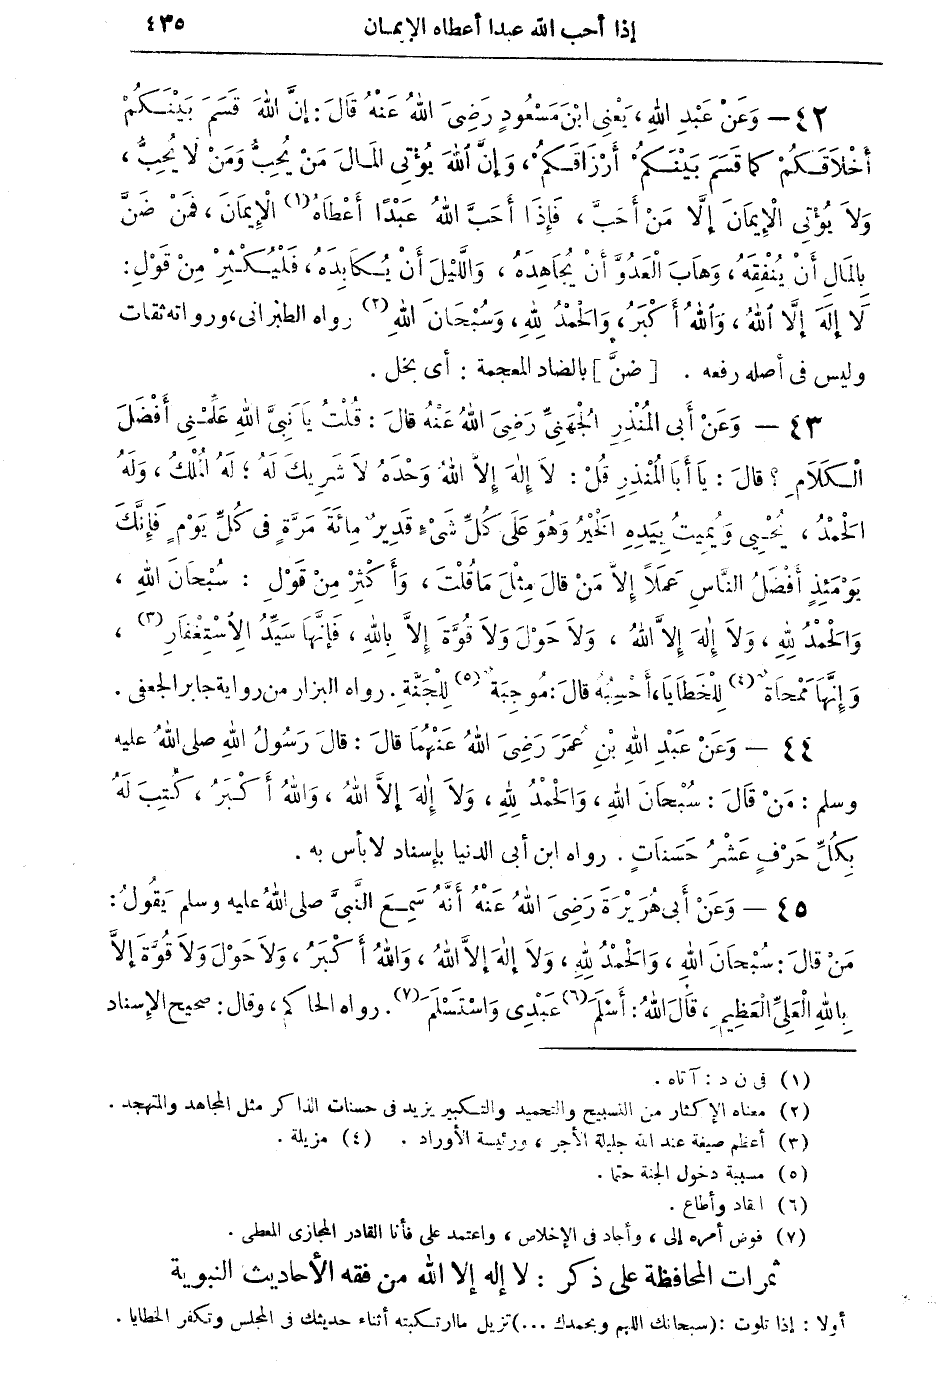 إذا أحب الله عبدا أعطاه الإيمـان ٤٣٥
٤٢ — وَعَنْ عَبْدِ اللهِ ، يَعْنِى ابْنَ مَسْعُودٍ رَضِىَ اللهُ عَنْهُ قَالَ : إِنَّ اللهَ قَسَمَ بَيْنَكُمْ
أَخْلَاقَكُمْ كَمَا قَسَمَ بَيْنَكُمْ أَرْزَاقَكُمْ ، وَإِنَّ اللهَ يُؤْتِى الْمَالَ مَنْ يُحِبُّ وَمَنْ لَا يُحِبُّ ،
وَلَا يُؤْتِى الْإِيمَانَ إِلَّا مَنْ أَحَبَّ ، فَإِذَا أَحَبَّ اللهُ عَبْدًا أَعْطَاهُ (١) الْإِيمَانَ ، فَمَنْ ضَنَّ
بِالْمَالِ أَنْ يُنْفِقَهُ ، وَهَابَ الْعَدُوَّ أَنْ يُجَاهِدَهُ ، وَاللَّيْلَ أَنْ يُكَابِدَهُ ، فَلْيُكْثِرْ مِنْ قَوْلِ :
لَا إِلهَ إِلَّا اللهُ ، وَاللهُ أَكْبَرُ ، وَالْحَمْدُ لِلهِ ، وَسُبْحَانَ اللهِ (٢) رواه الطبرانى ، ورواته ثقات
وليس فى أصله رفعه . [ ضَنَّ ] بالضاد المعجمة : أى بخل .
٤٣ — وَعَنْ أَبِى الْمُنْذِرِ الْجُهَنِىِّ رَضِىَ اللهُ عَنْهُ قَالَ : قُلْتُ يَا نَبِىَّ اللهِ عَلِّمْنِى أَفْضَلَ
الْكَلَامِ ؟ قَالَ : يَا أَبَا الْمُنْذِرِ قُلْ : لَا إِلٰهَ إِلاَّ اللهُ وَحْدَهُ لَا شَرِيكَ لَهُ ؛ لَهُ الْمُلْكُ ، وَلَهُ
الْحَمْدُ ، يُحْيِى وَيُمِيتُ بِيَدِهِ الْخَيْرُ وَهُوَ عَلَى كُلِّ شَىْءٍ قَدِيرٌ مِائَةَ مَرَّةٍ فِى كُلِّ يَوْمٍ فَإِنَّكَ
يَوْمَئِذٍ أَفْضَلُ النَّاسِ عَمَلاً إِلاَّ مَنْ قَالَ مِثْلَ مَا قُلْتَ ، وَأَكْثِرْ مِنْ قَوْلِ : سُبْحَانَ اللهِ ،
وَالْحَمْدُ لِلهِ ، وَلَا إِلٰهَ إِلاَّ اللهُ ، وَلَا حَوْلَ وَلَا قُوَّةَ إِلاَّ بِاللهِ ، فَإِنَّهَا سَيِّدُ الْاِسْتِغْفَارِ (٣) ،
وَإِنَّهَا مَمْحَاةٌ (٤) لِلْخَطَايَا ، أَحْسِبُهُ قَالَ : مُوجِبَةٌ (٥) لِلْجَنَّةِ . رواه البزار من رواية جابر الجعفى .
٤٤ — وَعَنْ عَبْدِ اللهِ بْنِ عُمَرَ رَضِىَ اللهُ عَنْهُمَا قَالَ : قَالَ رَسُولُ اللهِ صلى اللهُ عليه
وسلم : مَنْ قَالَ : سُبْحَانَ اللهِ ، وَالْحَمْدُ لِلهِ ، وَلَا إِلٰهَ إِلاَّ اللهُ ، وَاللهُ أَكْبَرُ ، كُتِبَ لَهُ
بِكُلِّ حَرْفٍ عَشْرُ حَسَنَاتٍ . رواه ابن أبى الدنيا بإسناد لا بأس به .
٤٥ — وَعَنْ أَبِى هُرَيْرَةَ رَضِىَ اللهُ عَنْهُ أَنَّهُ سَمِعَ النَّبِىَّ صلى اللهُ عليه وسلم يَقُولُ :
مَنْ قَالَ : سُبْحَانَ اللهِ ، وَالْحَمْدُ لِلهِ ، وَلَا إِلهَ إِلاَّ اللهُ ، وَاللهُ أَكْبَرُ ، وَلَا حَوْلَ وَلَا قُوَّةَ إِلاَّ
بِاللهِ الْعَلِىِّ الْعَظِيمِ ، قَالَ اللهُ : أَسْلَمَ (٦) عَبْدِى وَاسْتَسْلَمَ (٧) . رواه الحاكم ، وقال : صحيح الإسناد
(١) فى ن د : آتاه .
(٢) معناه الإكثار من التسبيح والتحميد والتكبير يزيد فى حسنات الذاكر مثل المجاهد والمتهجد .
(٣) أعظم صيغة عند الله جليلة الأجر ، ورئيسة الأوراد . (٤) مزيلة .
(٥) مسببة دخول الجنة حتما .
(٦) انقاد وأطاع .
(٧) فوض أمره إلى ، وأجاد فى الإخلاص ، واعتمد على فأنا القادر المجازى المعطى .
ثمرات المحافظة على ذكر : لا إله إلا الله من فقه الأحاديث النبوية
أولا : إذا تلوت : (سبحانك اللهم وبحمدك ...) تزيل ما ارتكبته أثناء حديثك فى المجلس وتكفر الخطايا .